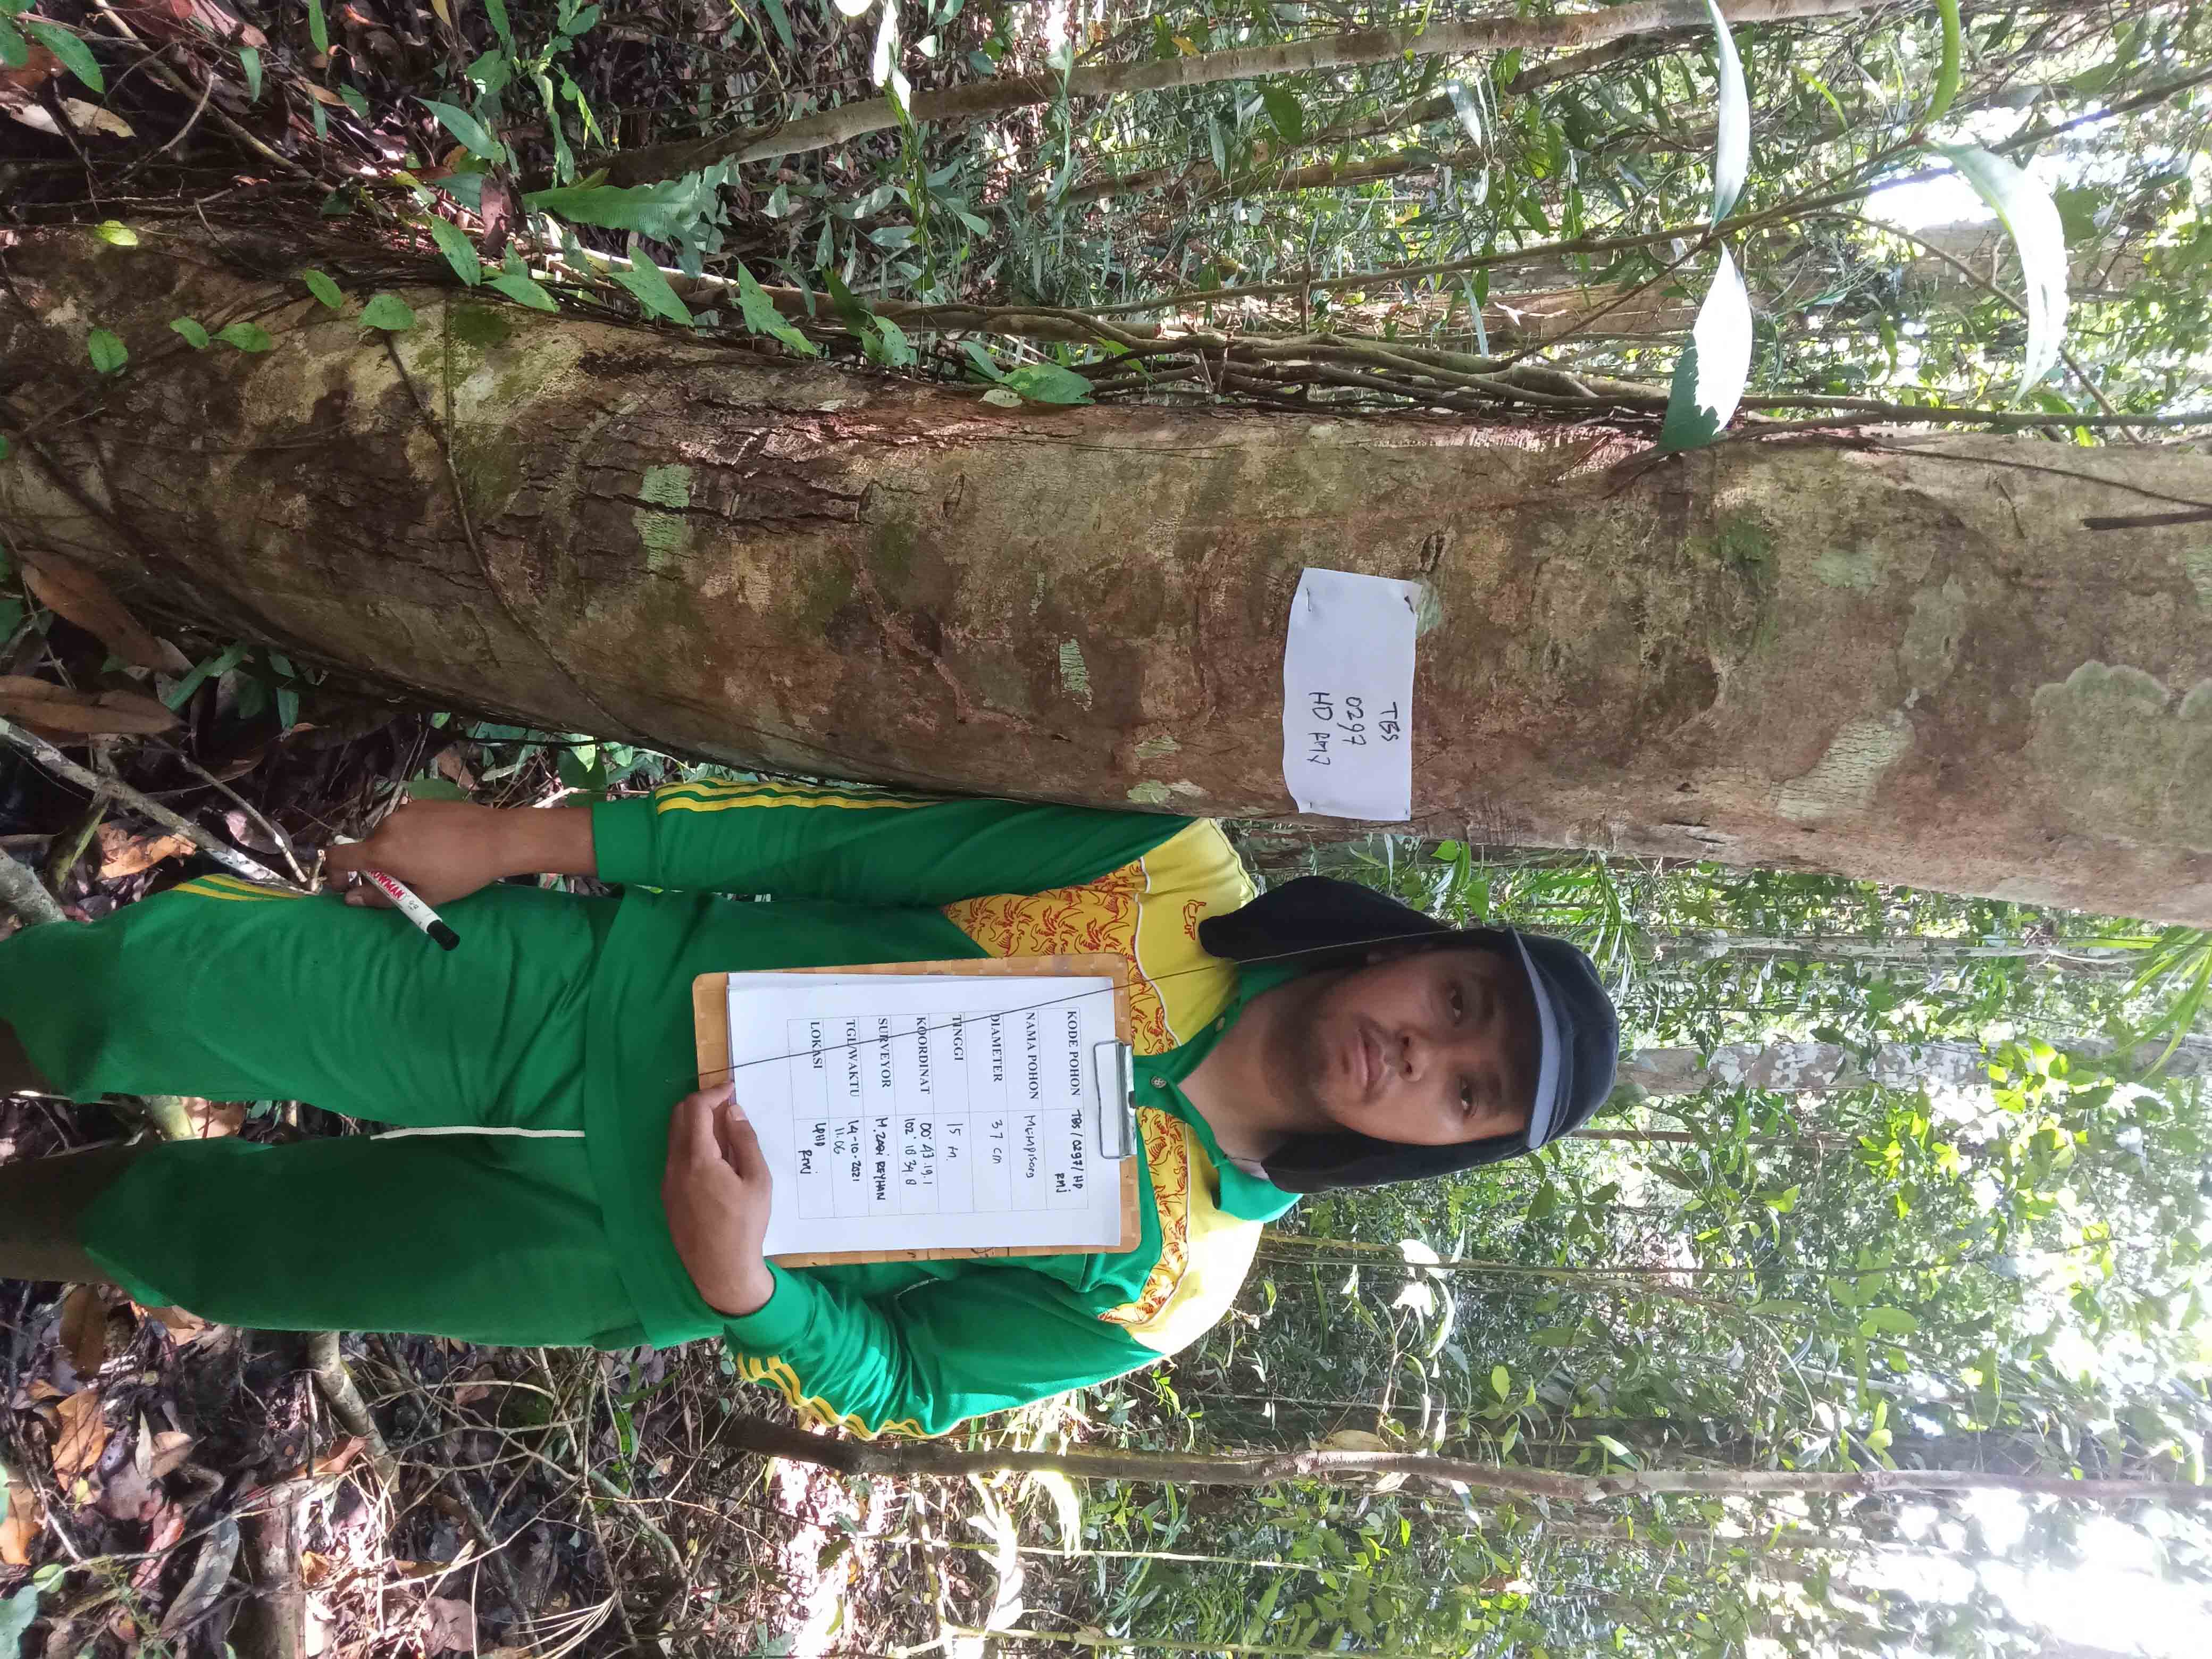 TBS
0297
HD RMJ
KODE POHON TBS/0297/HD
RMJ
NAMA POHON Mempisang
DIAMETER 37 cm
TINGGI 15 m
KOORDINAT 00° 43 19.1
102° 18 34 8
SURVEYOR M. ZAQI REYHAN
TGL/WAKTU 14-10-2021
11.06
LOKASI LPHD
RMJ
SNOWMAN